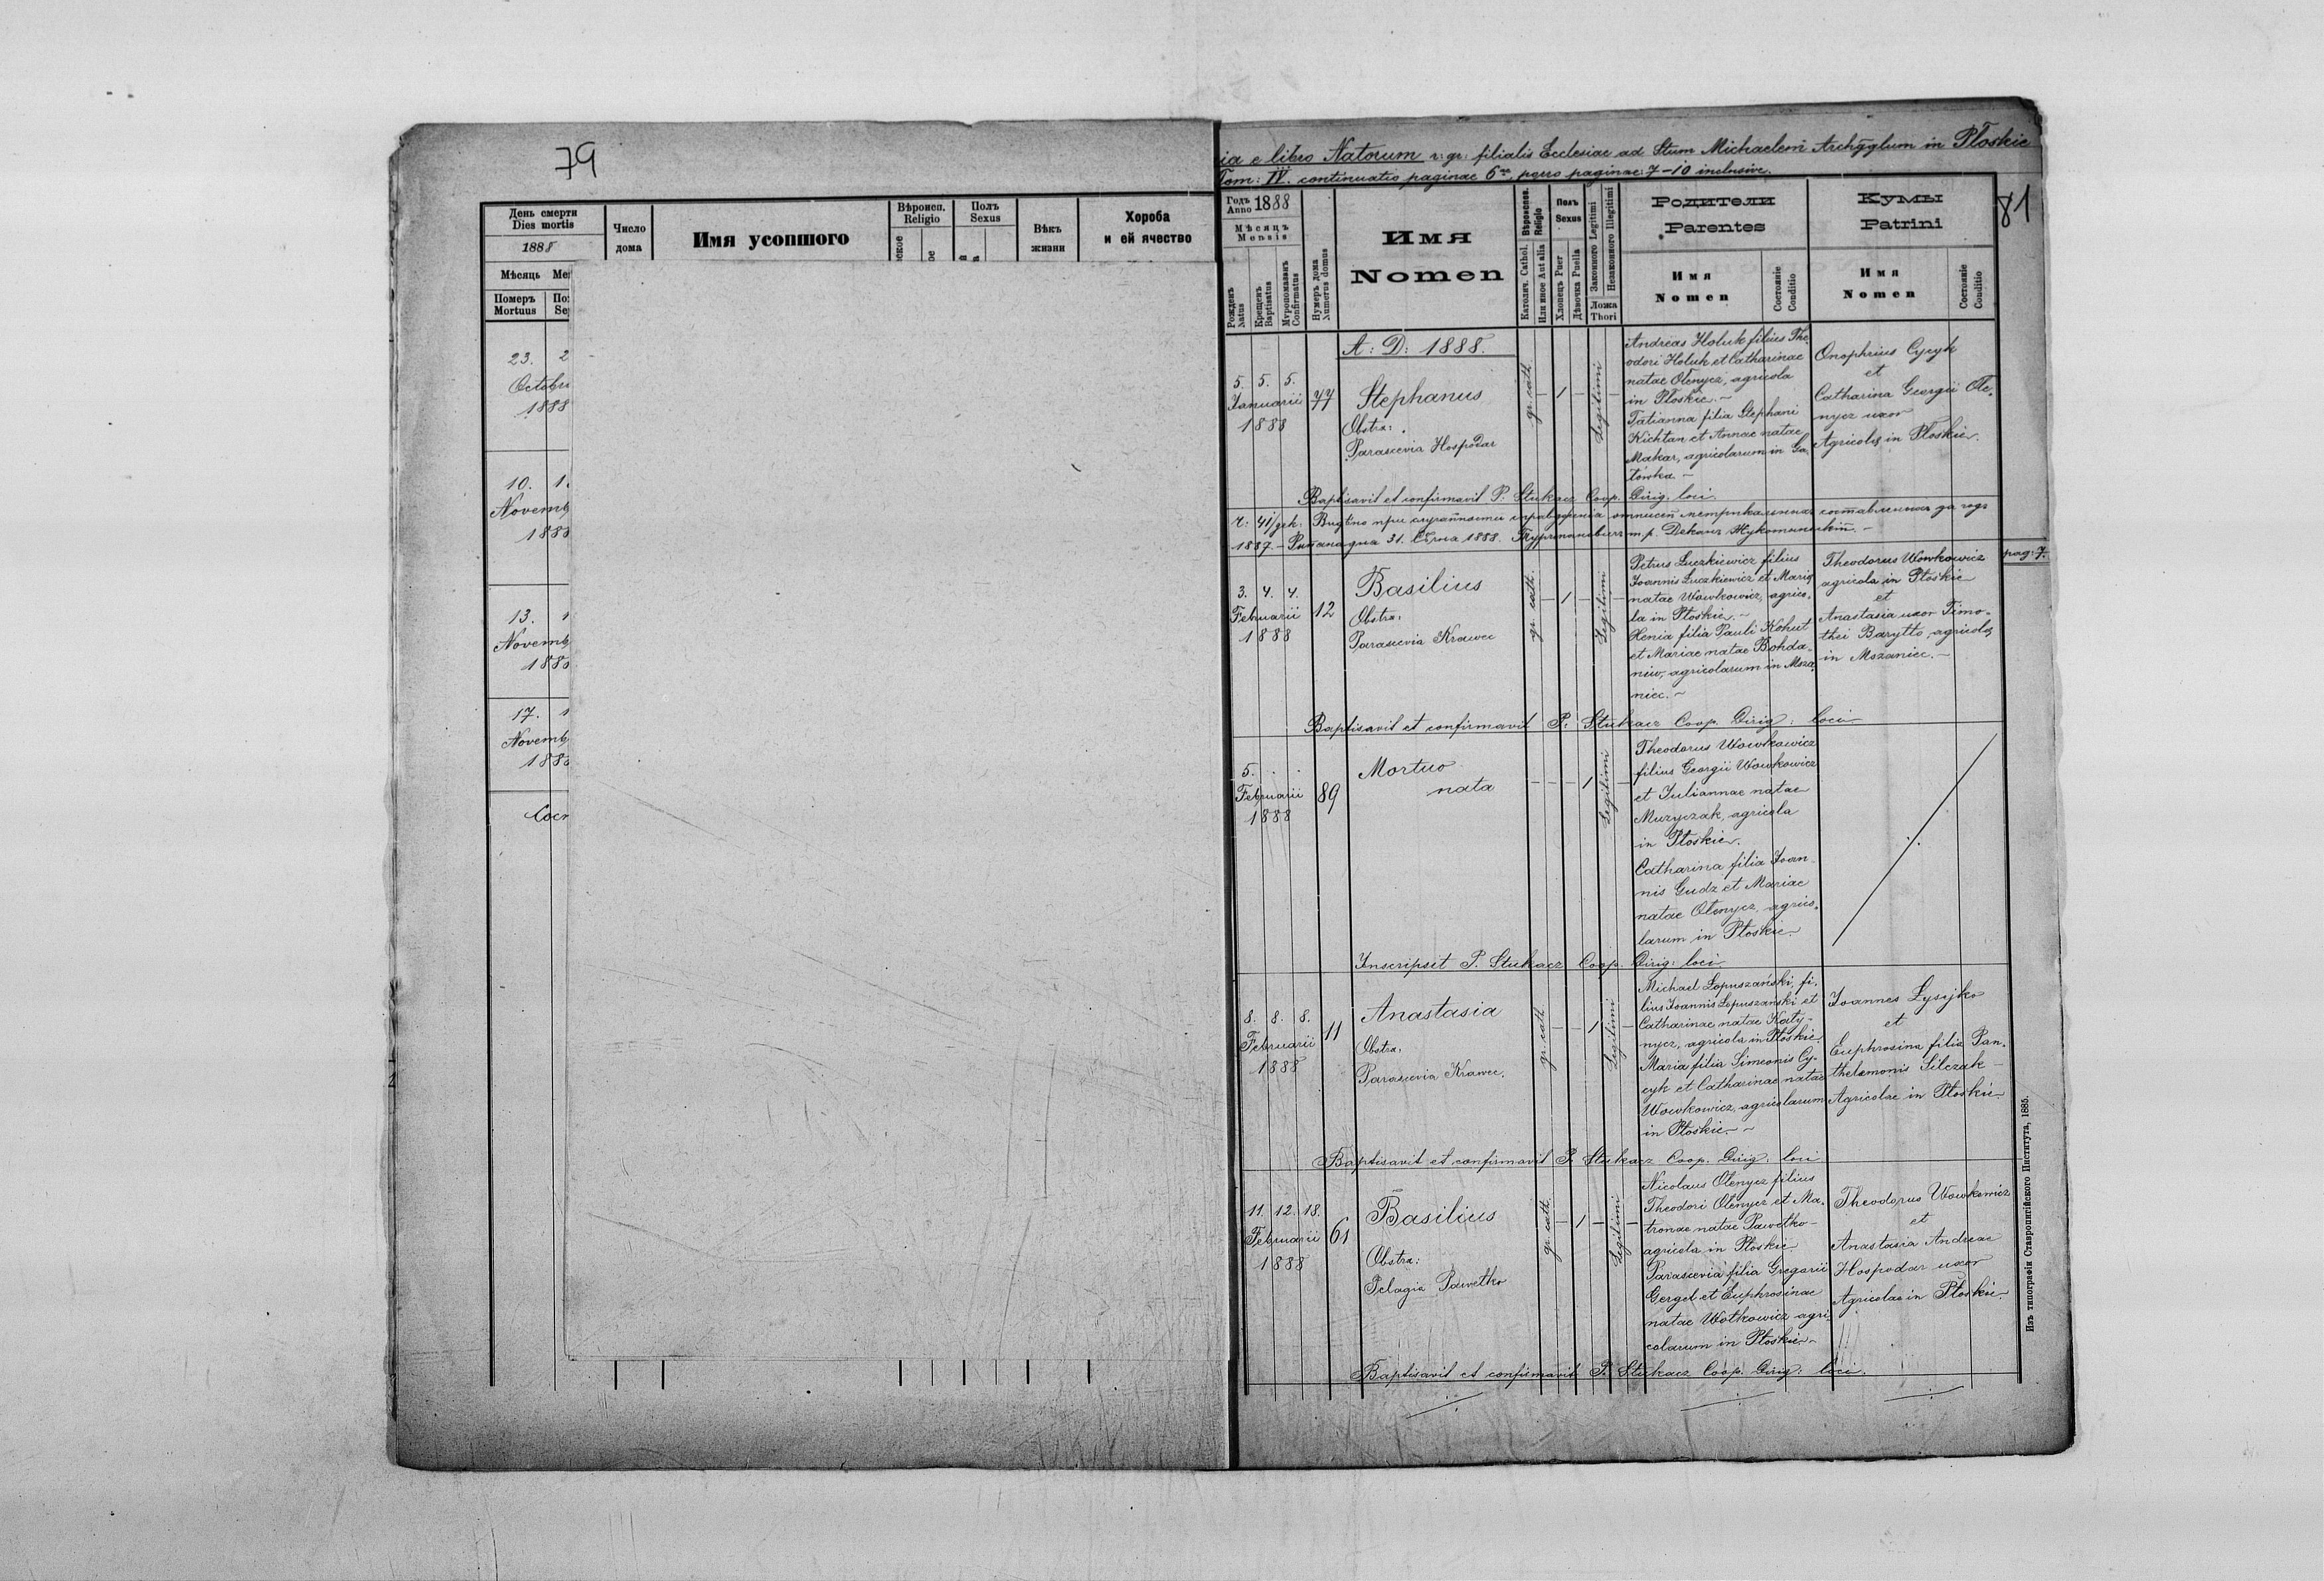 79
День смерти
Dies mortis
1888
Мѣсяць
Померъ
Mortuus
Число
дома
Имя усопшого
Вѣроисп.
Religio
Полъ
Sexus
Вѣкъ
жизни
Хороба
и ей ячество
23. 2
Octobri
1888
10. 1
Novemb
188
13. 1
Novemb
188
17. 1
Novemb
188
ia e libro Natorum r: gr: filialis Ecclesiae ad Stum Michaelem Archgglum in Płoskie
Tom: IV. continuatio paginae 6ae, porro paginae: 7-10 inclusive.
81
Годъ
Anno 1888
Мѣсяцъ
Mensis
Рожденъ
Natus
Крещенъ
Baptisatus
Мѵропомазанъ
Confirmatus
Нумеръ дома
Numerus domus
Имя
Nomen
Католич. Cathol.
Или иное Aut alia
Вѣроиспов.
Religio
Полъ
Sexus
Хлопецъ Puer
Дѣвочка Puella
Законного Legitimi
Незаконного Illegitimi
Ложа
Thori
Родители
Parentes
Имя
Nomen
Состояніе
Conditio
Кумы
Patrini
Имя
Nomen
Состояніе
Conditio
A: D: 1888.
5. 5. 5.
Januarii
1888
77
Stephanus
Obstx:
Parascevia Hospodar
gr. cath.
1
Legitimi
Andreas Holuk filius The-
odori Holuk et Catharinae
natae Olenycz, agricola
in Płoskie.
Tatianna filia Stephani
Kichtan et Annae natae
Makar, agricolarum in Ga-
łówka.
Onophrius Cycyk
et
Catharina Georgii Ole-
nycz uxor
Agricolae in Płoskie.
Baptisavit et confirmavit P. Stukacz Coop. Dirig: loci
ч: 41/дек:
1887
31.
1888.
pag: 7.
3. 4. 4.
Februarii
1888
12
Basilius
Obstx:
Parascevia Krawec
gr. cath.
1
Legitimi
Petrus Łuczkiewicz filius
Joannis Łuczkiewicz et Mariae
natae Wowkowicz, agrico-
la in Płoskie.
Xenia filia Pauli Kohut
et Mariae natae Bohda-
niw, agricolarum in Msza-
niec.
Theodorus Wowkowicz
agricola in Płoskie
et
Anastasia uxor Timo-
thei Baryłło, agricolae
in Mszaniec.
Baptisavit et confirmavit P. Stukacz Coop. Dirig: loci
5.
Februarii
1888
89
Mortuo
nata
1
Legitimi
Theodorus Wowkowicz
filius Georgii Wowkowicz
et Juliannae natae
Muzyczak, agricola
in Płoskie.
Catharina filia Joan-
nis Gudz et Mariae
natae Olenycz, agrico-
larum in Płoskie.
Inscripsit P. Stukacz Coop. Dirig: loci
8. 8. 8.
Februarii
1888
11
Anastasia
Obstx:
Parascevia Krawec.
gr. cath.
1
Legitimi
Michael Łopuszański, fi-
lius Joannis Łopuszański et
Catharinae natae Katy-
nycz, agricola in Płoskie
Maria filia Simeonis Cy-
cyk et Catharinae natae
Wowkowicz, agricolarum
in Płoskie.
Joannes Łysyjko
et
Euphrosina filia Pan-
thelemonis Silczak
Agricolae in Płoskie
Baptisavit et confirmavit P. Stukacz Coop. Dirig: loci
11. 12. 18.
Februarii
1888
61
Basilius
Obstx:
Pelagia Pawełko
gr. cath.
1
Legitimi
Nicolaus Olenycz filius
Theodori Olenycz et Ma-
tronae natae Pawełko
agricola in Płoskie.
Parascevia filia Gregorii
Gergel et Euphrosinae
natae Wołkowicz agri-
colarum in Płoskie.
Theodorus Wowkowicz
et
Anastasia Andreae
Hospodar uxor
Agricolae in Płoskie.
Baptisavit et confirmavit P. Stukacz Coop. Dirig: loci.
Изъ типографіи Ставропигійского Института, 1885.